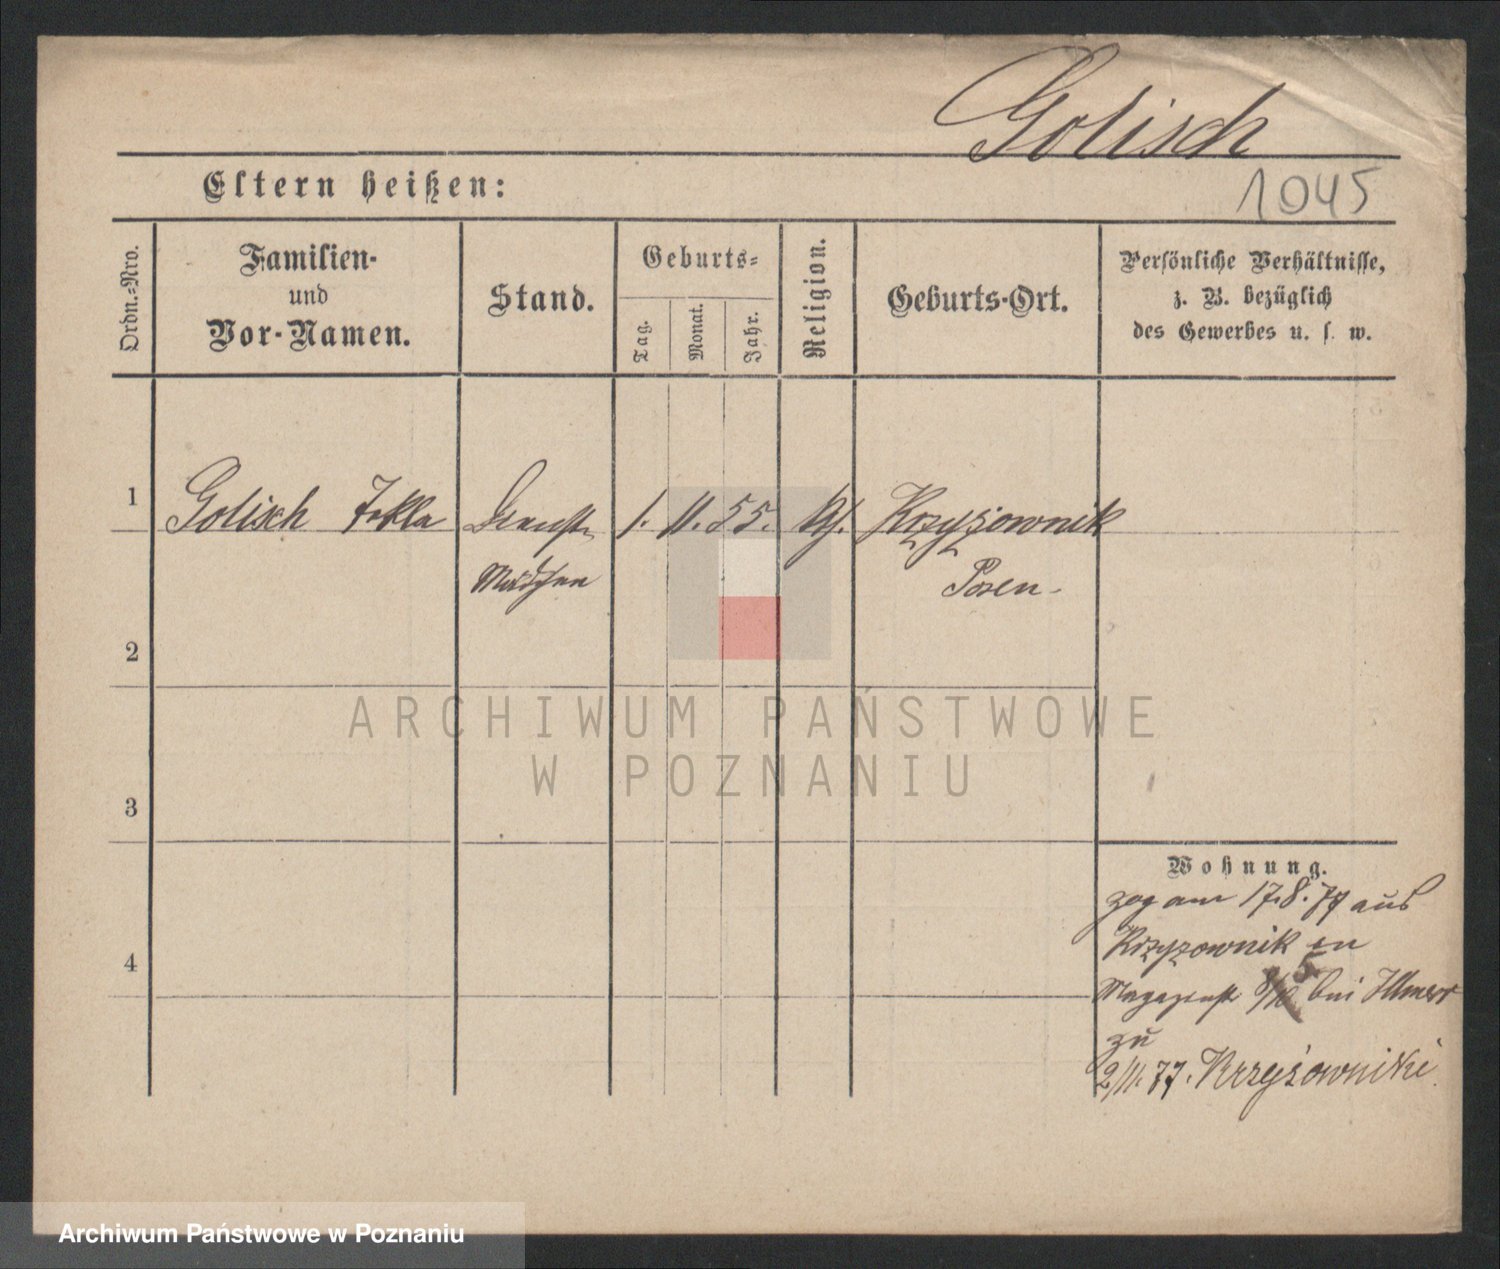 Golisch
Eltern heißen:
1045
Ordn.-Nro.
Familien-
und
Vor-Namen.
Stand.
Geburts-
Tag.
Monat.
Jahr.
Religion.
Geburts-Ort.
Persönliche Verhältnisse,
z. B. bezüglich
des Gewerbes u. s. w.
1 Golisch Tekla Dienst- 1. 11. 55. kth. Krzyżownik
Mädchen Posen
2
3
4
ARCHIWUM PAŃSTWOWE
W POZNANIU
Wohnung.
zog am 17.8.77 aus
Krzyzownik in
Magazinstr. bei Illmer
zu
2/11.77. Krzyżowniki
Archiwum Państwowe w Poznaniu